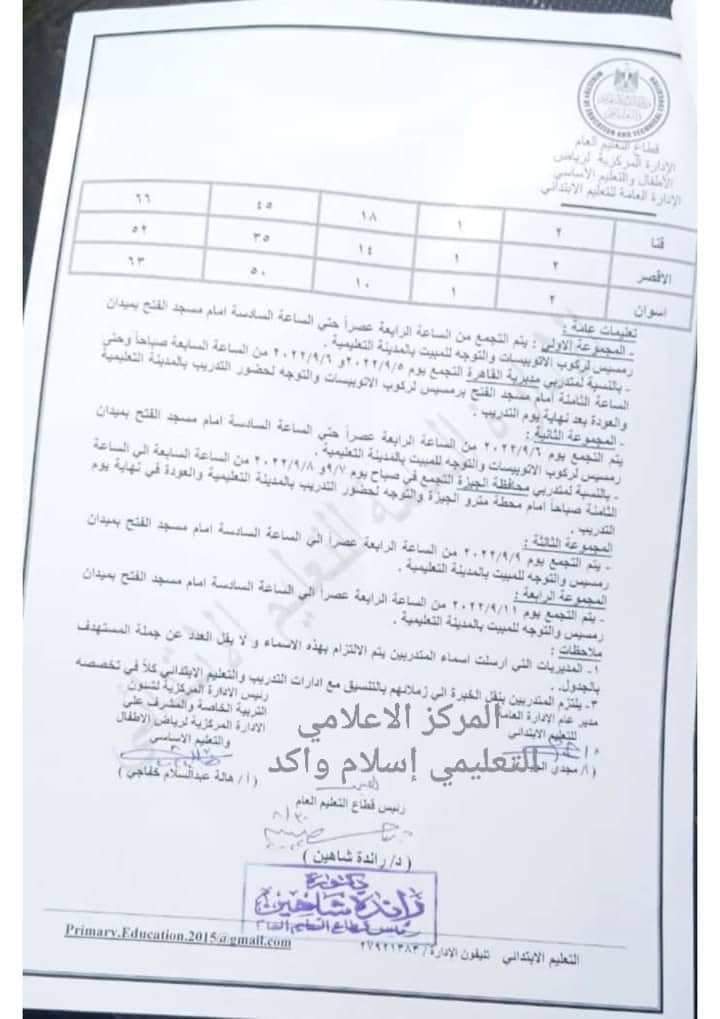 MINISTRY OF EDUCATION AND TECHNICAL EDUCATION
قطاع التعليم العام
الإدارة المركزية لرياض
الأطفال والتعليم الأساسي
الإدارة العامة للتعليم الابتدائي
قنا ٢ ١ ١٨ ٤٥ ٦٦
الاقصر ٢ ١ ١٤ ٣٥ ٥٢
اسوان ٢ ١ ١٠ ٥٠ ٦٣
تعليمات عامة :
- المجموعة الاولي : يتم التجمع من الساعة الرابعة عصراً حتي الساعة السادسة امام مسجد الفتح بميدان
رمسيس لركوب الاتوبيسات والتوجه للمبيت بالمدينة التعليمية .
- بالنسبة لمتدربي مديرية القاهرة التجمع يوم ٢٠٢٢/٩/٥ و ٢٠٢٢/٩/٦ من الساعة السابعة صباحاً وحتي
الساعة الثامنة أمام مسجد الفتح برمسيس لركوب الاتوبيسات والتوجه لحضور التدريب بالمدينة التعليمية
والعودة بعد نهاية يوم التدريب .
- المجموعة الثانية :
يتم التجمع يوم ٢٠٢٢/٩/٦ من الساعة الرابعة عصراً حتي الساعة السادسة امام مسجد الفتح بميدان
رمسيس لركوب الاتوبيسات والتوجه للمبيت بالمدينة التعليمية .
- بالنسبة لمتدربي محافظة الجيزة التجمع في صباح يوم ٩/٧ و ٢٠٢٢/٩/٨ من الساعة السابعة الي الساعة
الثامنة صباحاً امام محطة مترو الجيزة والتوجه لحضور التدريب بالمدينة التعليمية والعودة في نهاية يوم
التدريب .
المجموعة الثالثة :
- يتم التجمع يوم ٢٠٢٢/٩/٩ من الساعة الرابعة عصراً الي الساعة السادسة امام مسجد الفتح بميدان
رمسيس والتوجه للمبيت بالمدينة التعليمية .
المجموعة الرابعة :
- يتم التجمع يوم ٢٠٢٢/٩/١١ من الساعة الرابعة عصراً الي الساعة السادسة امام مسجد الفتح بميدان
رمسيس والتوجه للمبيت بالمدينة التعليمية .
ملاحظات :
١- المديريات التي ارسلت اسماء المتدربين يتم الالتزام بهذه الاسماء و لا يقل العدد عن جملة المستهدف
بالجدول .
٣- يلتزم المتدربين بنقل الخبرة الي زملائهم بالتنسيق مع ادارات التدريب والتعليم الابتدائي كلاً في تخصصه
مدير عام الإدارة العامة
للتعليم الابتدائي
( أ/ مجدي
رئيس الادارة المركزية لشئون
التربية الخاصة والمشرف علي
الإدارة المركزية لرياض الاطفال
والتعليم الاساسي
( أ/ هالة عبدالسلام خفاجي )
المركز الاعلامي
للتعليمي إسلام واكد
رئيس قطاع التعليم العام
٨/٣٠
( د/ راندة شاهين )
دكتورة
راندة شاهين
رئيس قطاع التعليم العام
التعليم الابتدائي تليفون الإدارة / ٢٧٩٢١٣٨٣
Primary.Education.2015@gmail.com